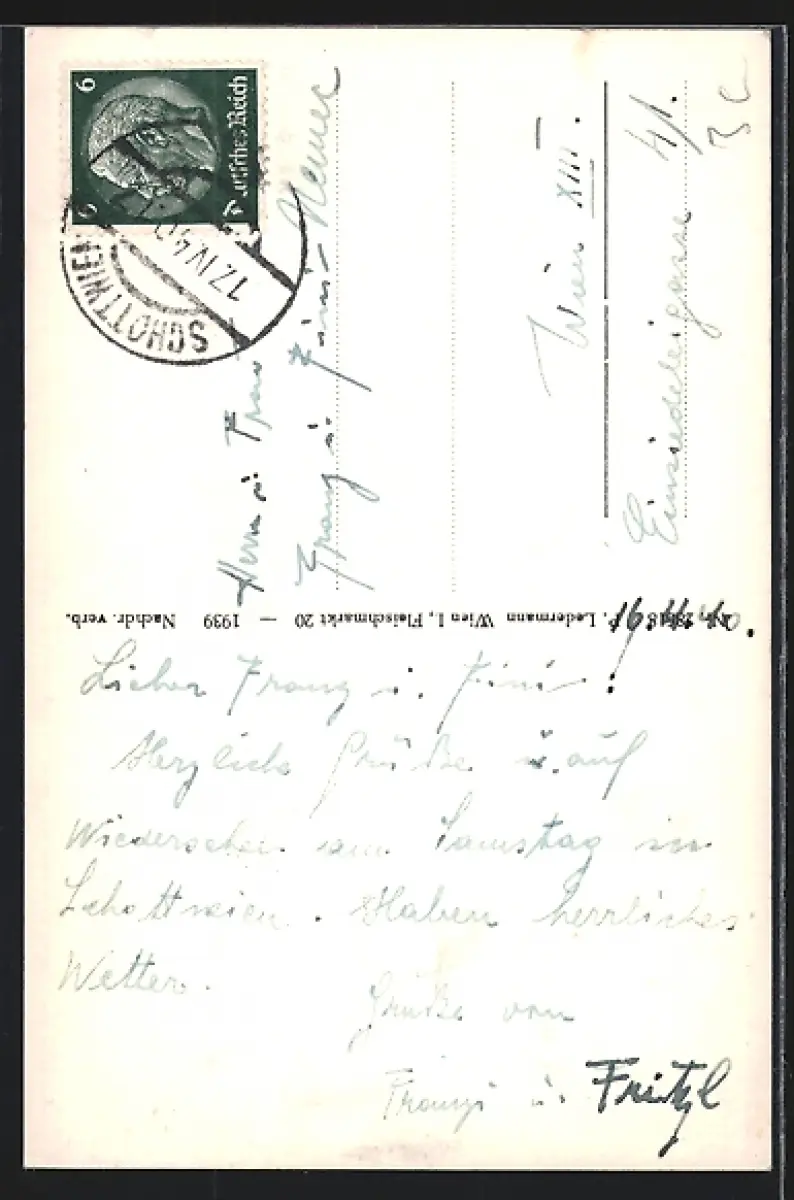 6 Deutsches Reich 6
SCHOTTWIEN
17.IV.40
Herrn u. Frau
Franz u. Fini
Wien XIII.
Einsiedeleigasse 41.
P. Ledermann Wien I., Fleischmarkt 20 — 1939 Nachdr. verb.
Lieber Franz u. Fini!
Herzliche Grüße u. auf
Wiedersehen am Samstag in
Schottwien. Haben herrliches
Wetter.
Grüße von
Franzi u. Fritzl